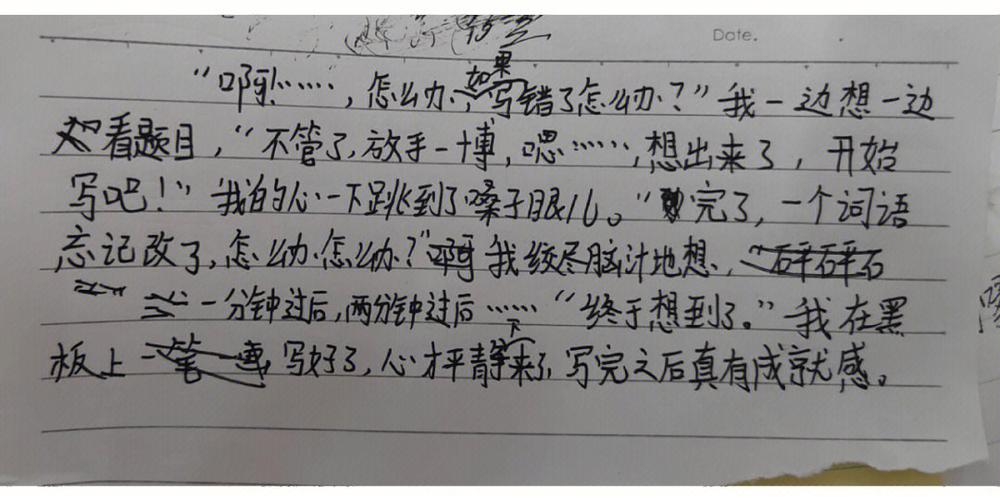 Date.
“啊!……,怎么办,如果写错了怎么办?”我一边想一边
看题目,“不管了,放手一博,嗯……,想出来了,开始
写吧!”我的心一下跳到了嗓子眼儿。“完了,一个词语
忘记改了,怎么办怎么办?”我绞尽脑汁地想,
一分钟过后,两分钟过后……“终于想到了。”我在黑
板上写好了,心才平静下来了,写完之后真有成就感。